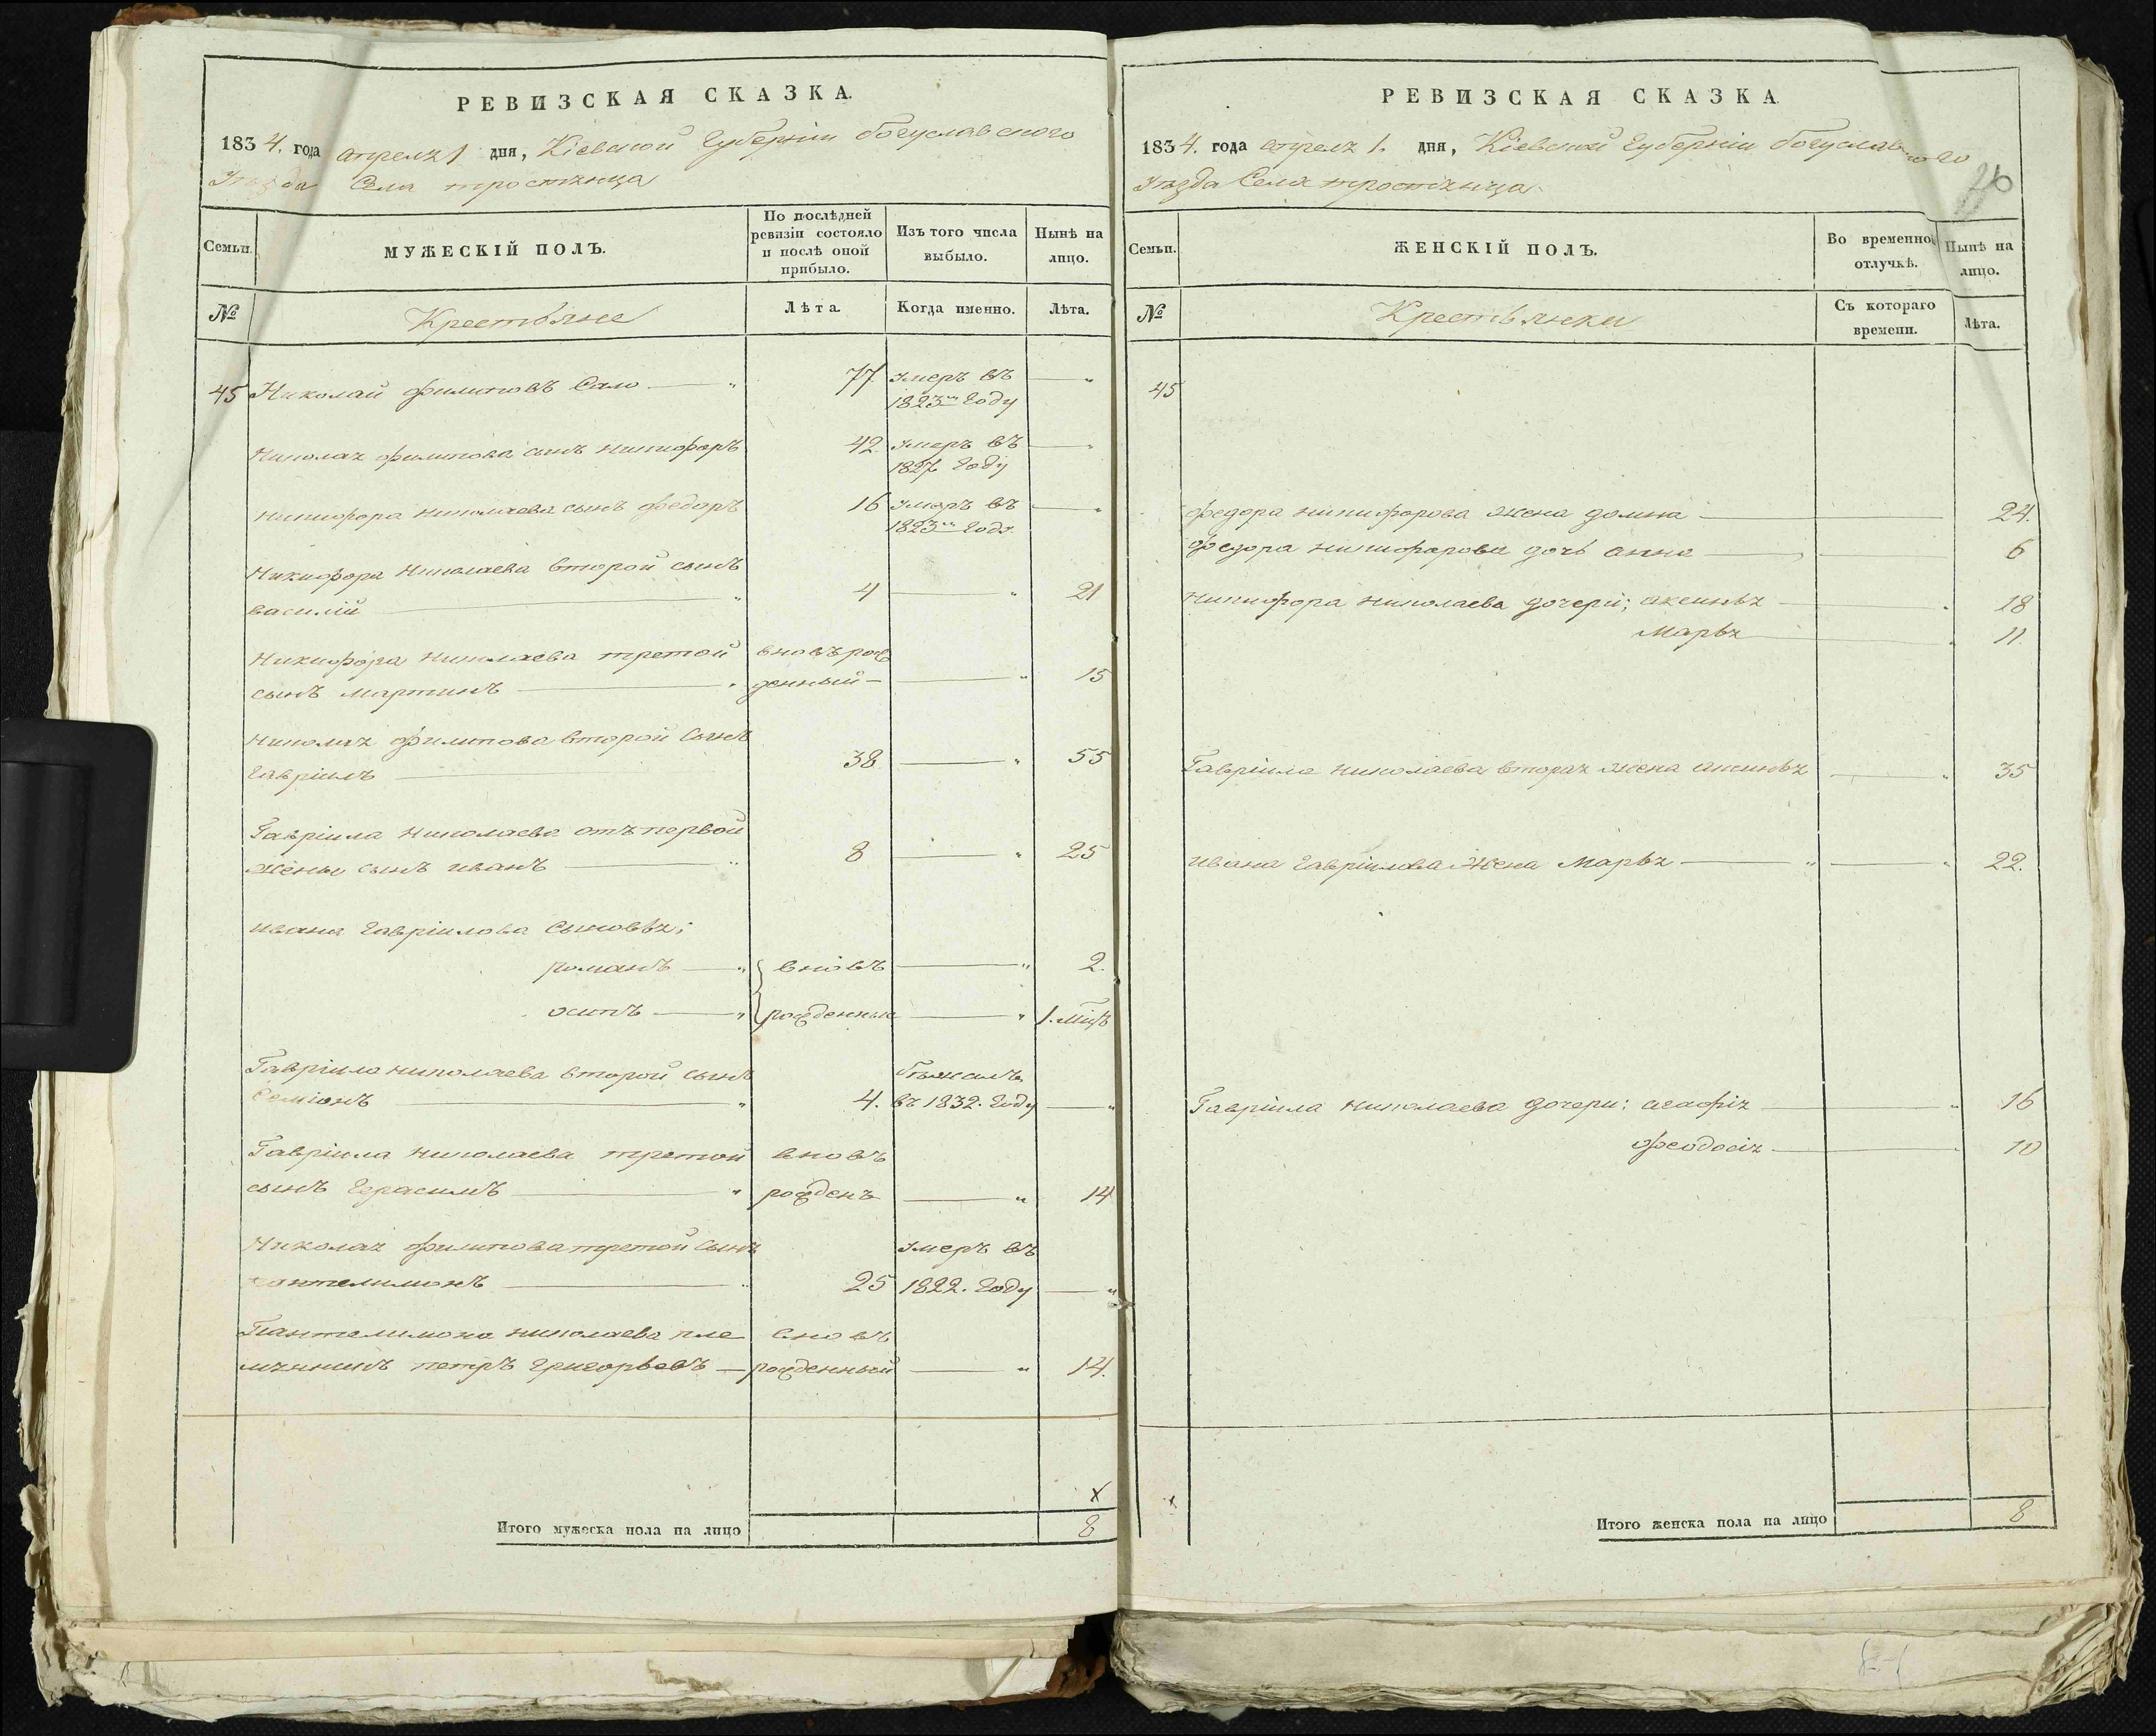 РЕВИЗСКАЯ СКАЗКА.
1834. года апреля 1 дня, Кіевской Губерніи богуславского
Уѣзда Села тростянца
Семьи.
МУЖЕСКІЙ ПОЛЪ.
По послѣдней ревизіи состояло и послѣ оной прибыло.
Изъ того числа выбыло.
Нынѣ на лицо.
№
Крестьяне
Лѣта
Когда именно.
Лѣта.
45 Николай филиповъ Сало — 77 умеръ въ
1823м Году
Николая филипова сынъ никифоръ 42. умеръ въ
1827 Году
никифора николаева сынъ федоръ 16 умеръ въ
1823м Году
Никифора Николаева второй сынъ
василій — 4 — 21
Никифора николаева третой вновърож
сынъ мартинъ — денный — 15
николая филипова второй Сынъ
Гавріилъ — 38 — 55
Гавріила николаева отъ первой
жены сынъ иванъ — 8 — 25
ивана Гавріилова Сыновья;
романъ — вновъ — 2.
осипъ — рожденные — 1. мцъ
Гавріила николаева второй сынъ бѣжалъ
Семіонъ — 4. въ 1832. Году —
Гавріила николаева третой вновъ
сынъ Герасимъ — рожденъ — 14
Николая филипова третой сынъ умеръ въ
пантелимонъ — 25 1822. Году —
Пантелимона николаева пле вновъ
мянникъ петръ григорьевъ — рожденный — 14.
х
Итого мужеска пола на лицо 8
РЕВИЗСКАЯ СКАЗКА
1834. года апреля 1. дня, Кіевской Губерніи богуславского
уѣзда Села тростянца.
Семьи.
ЖЕНСКІЙ ПОЛЪ.
Во временной отлучкѣ.
Нынѣ на лицо.
№
Крестьянки
Съ котораго времени.
Лѣта.
45
федора никифорова жена домна — 24.
федора никифорова дочь анна — 6
Никифора николаева дочери; аксинья — 18
Марья — 11.
Гавріила николаева вторая жена аксинья — 35
ивана Гавріилова жена Марья — 22.
Гавріила николаева дочери: агафія — 16
феодосія — 10
х
Итого женска пола на лицо 8